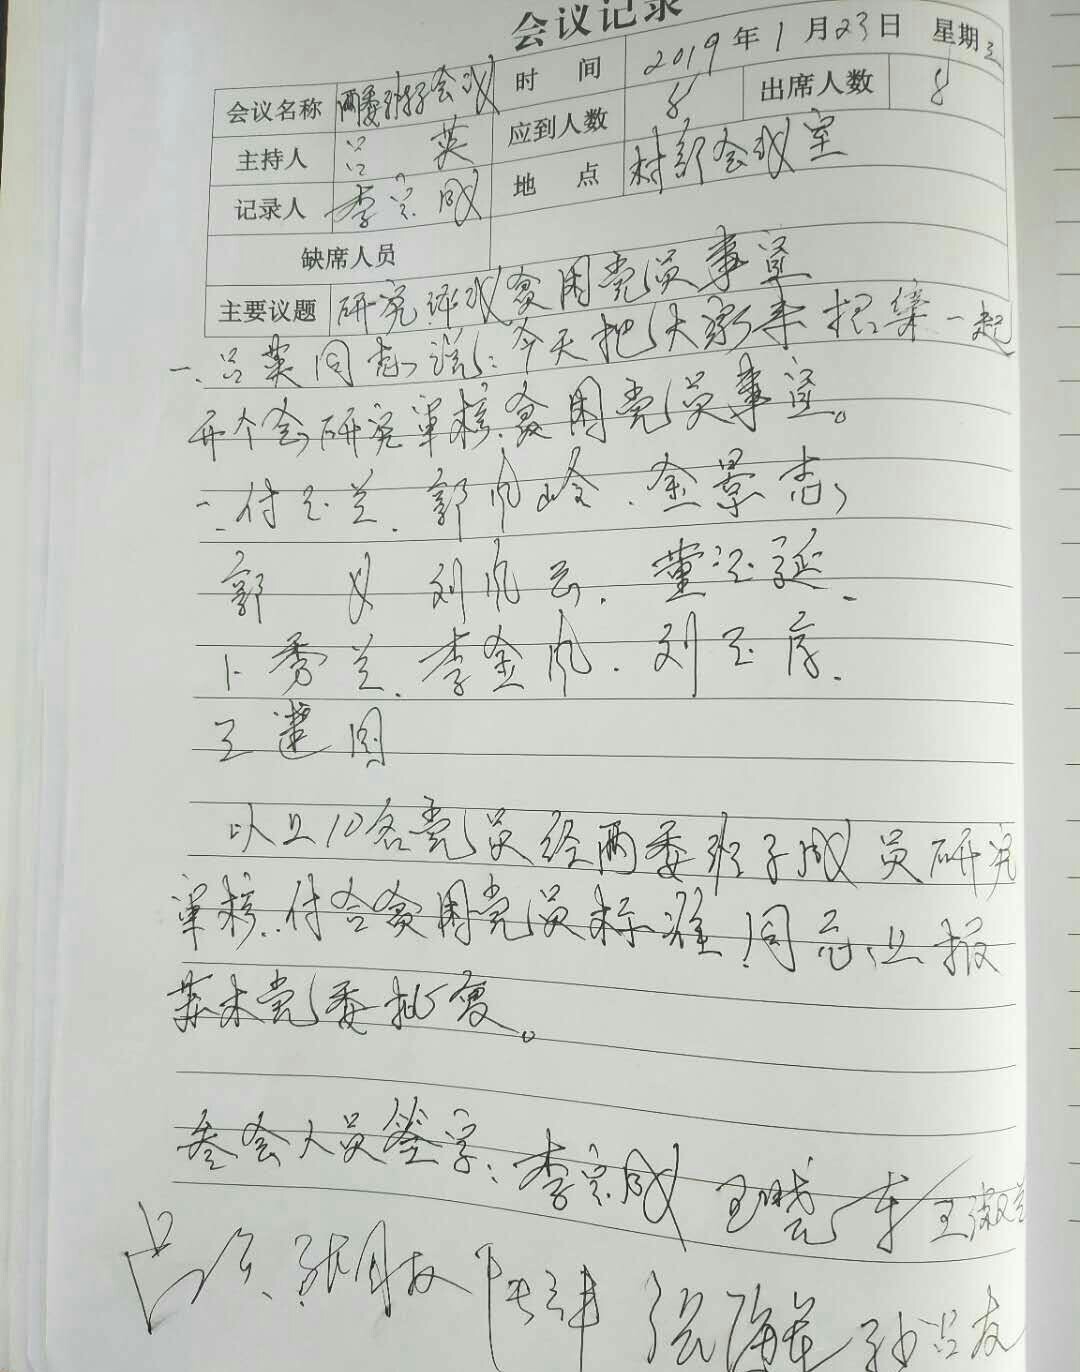 会议记录
会议名称 两委班子会议 时间 2019年1月23日 星期三
主持人 吕英 应到人数 8 出席人数 8
记录人 李宗成 地点 村部会议室
缺席人员
主要议题 研究评议贫困党员事宜
一、吕英同志说:今天把大家来招集一起
开个会,研究审核贫困党员事宜。
二、付玉兰、郭凤岭、金景志、
郭 刘凤云、董延
卜秀兰、李金凤、刘玉
王建国
以上10名党员经两委班子成员研究
审核、付合贫困党员标准同志,上报
苏木党委批复。
参会人员签字:李宗成 王晓东 王淑兰
吕英 张 张海 孙占友